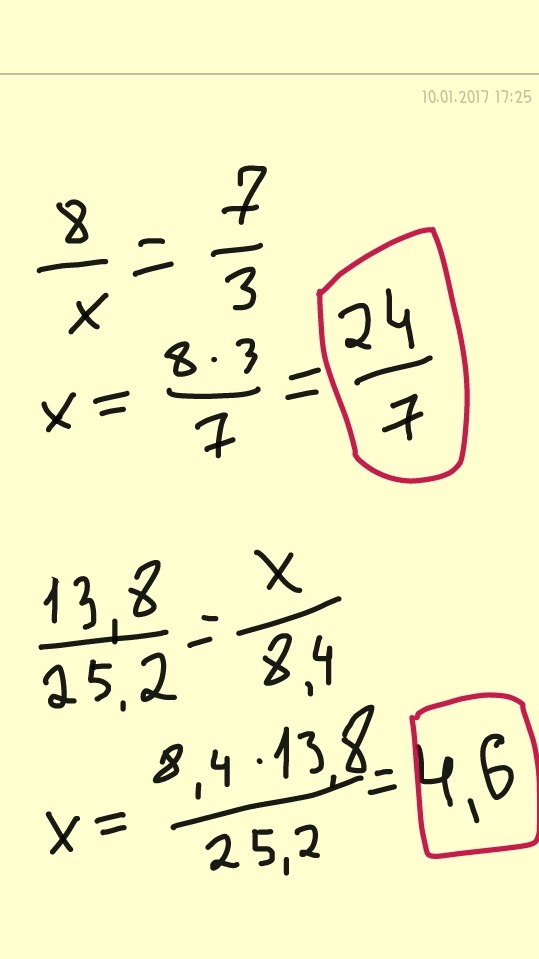 10.01.2017 17:25
8/x = 7/3
x = 8·3/7 = 24/7
13,8/25,2 = x/8,4
x = 8,4·13,8/25,2 = 4,6